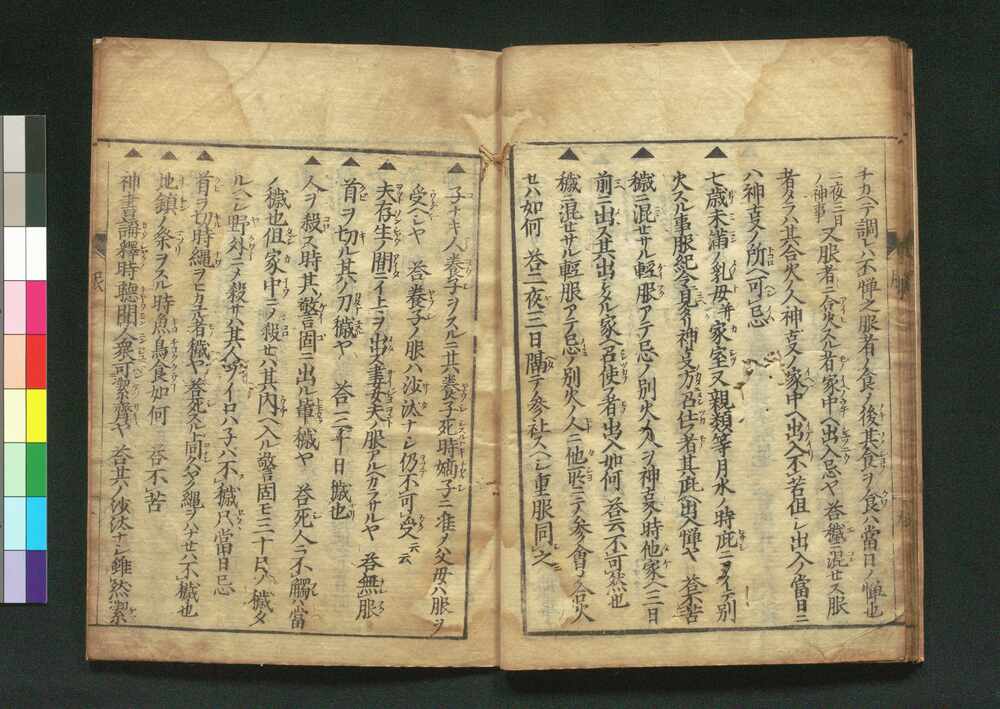 チカヘテ調レハ不憚之服者ノ食ノ後其食ヲ食ハ當日ノ憚也
二夜三日ノ神事
又服者ニ合火スル者家中ヘ出入忌ヤ 答穢ニ混セス服
者タラハ其合火ノ人神事ノ家中ヘ出入不苦但シ出入ノ當日ニ
ハ神事ノ所ヘ可忌
七歳未滿ノ乳母并家室又親類等月水ノ時此ニヲイテ別
火スル事服紀令有神事方召仕ノ者其此出入憚ヤ 答不苦
穢ニ混セサル輕服アテ忌ノ別火ノ人ヲ神事ノ時他家ヘ三日
前ニ出ス其出タル家召使者出入如何 答云不可然也
穢ニ混セサル輕服アテ忌ノ別火ノ人ニ他所ニテ參會シ合火
セハ如何 答二夜三日隔テ參社スヘシ重服同之
子ナキ人養子ヲスルニ其養子死時嫡子ニ准ノ父母ハ服ヲ
受ヘシヤ 答養子ノ服ハ沙汰ナシ仍不可受云云
夫存生ノ間ニイトマヲ出ス妻夫ノ服アルヘカラサルヤ 答無服
首ヲ切ル其ノ刀穢ヤ 答三十日穢也
人ヲ殺ス時其警固ニ出ル輩穢ヤ 答死人ニ不觸ハ當
ノ穢也但家中ニテ殺セハ其内ヘ入ル警固モ三十日ノ穢タ
ルヘシ野外ニテ殺サハ其人ヲイロハ子ハ不穢只當日忌
首ヲ切時繩ヲヒカエル者穢ヤ 答死人ト同々ハヘ繩ヲハナセハ不穢也
地鎮ノ祭ヲスル時魚鳥食如何 答不苦
神書講釋時聽聞人衆可潔齋ヤ 答其ノ沙汰ナシ雖然潔
服